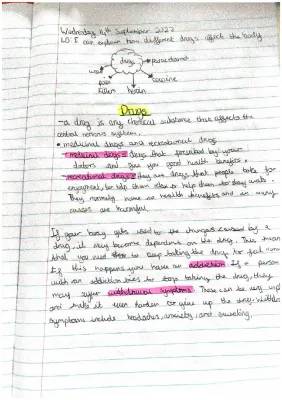 Wednesday 14th September 2022
LO: I can explain how different drugs affect the body
drugs
paracetamol
weed
caffeine
pain killers
heroin
Drugs
- a drug is any chemical substance that affects the
central nervous system.
• medicinal drugs and recreational drug
- medicinal drugs = drugs that perscribed by your
doctors and give you good health benefits.
• recreational drugs = they are drugs that people take for
enjoyment, to help them or help them to stay awake.
They normally have no health benefits and in many
causes are harmful.
If your body gets used to the changes caused by a
drug, it may become dependent on the drug. This means
that you need to keep taking the drug to feel normal
If this happens you have an addiction If a person
with an addiction tries to stop taking the drug, they
may suffer withdrawal symptoms These can be very unp
and make it even harder to give up the drug. withdra
symptoms include headaches, anxiety and sweating.